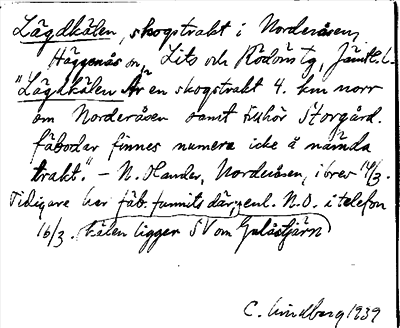 Lägdkälen, skogstrakt i Norderåsen,
Häggenås sn, Lits och Rödöns tg, Jämtl. l.
"Lägdkälen är en skogstrakt 4. km norr
om Norderåsen samt tillhör Storgård.
fäbodar finnes numera icke å nämda
trakt." – N. Olander, Norderåsen, i brev 14/3.
Tidigare har fäb. funnits där, enl. N.O. i telefon
16/3. Kälen ligger SV om Gulåstjärn
C. Lindberg 1939